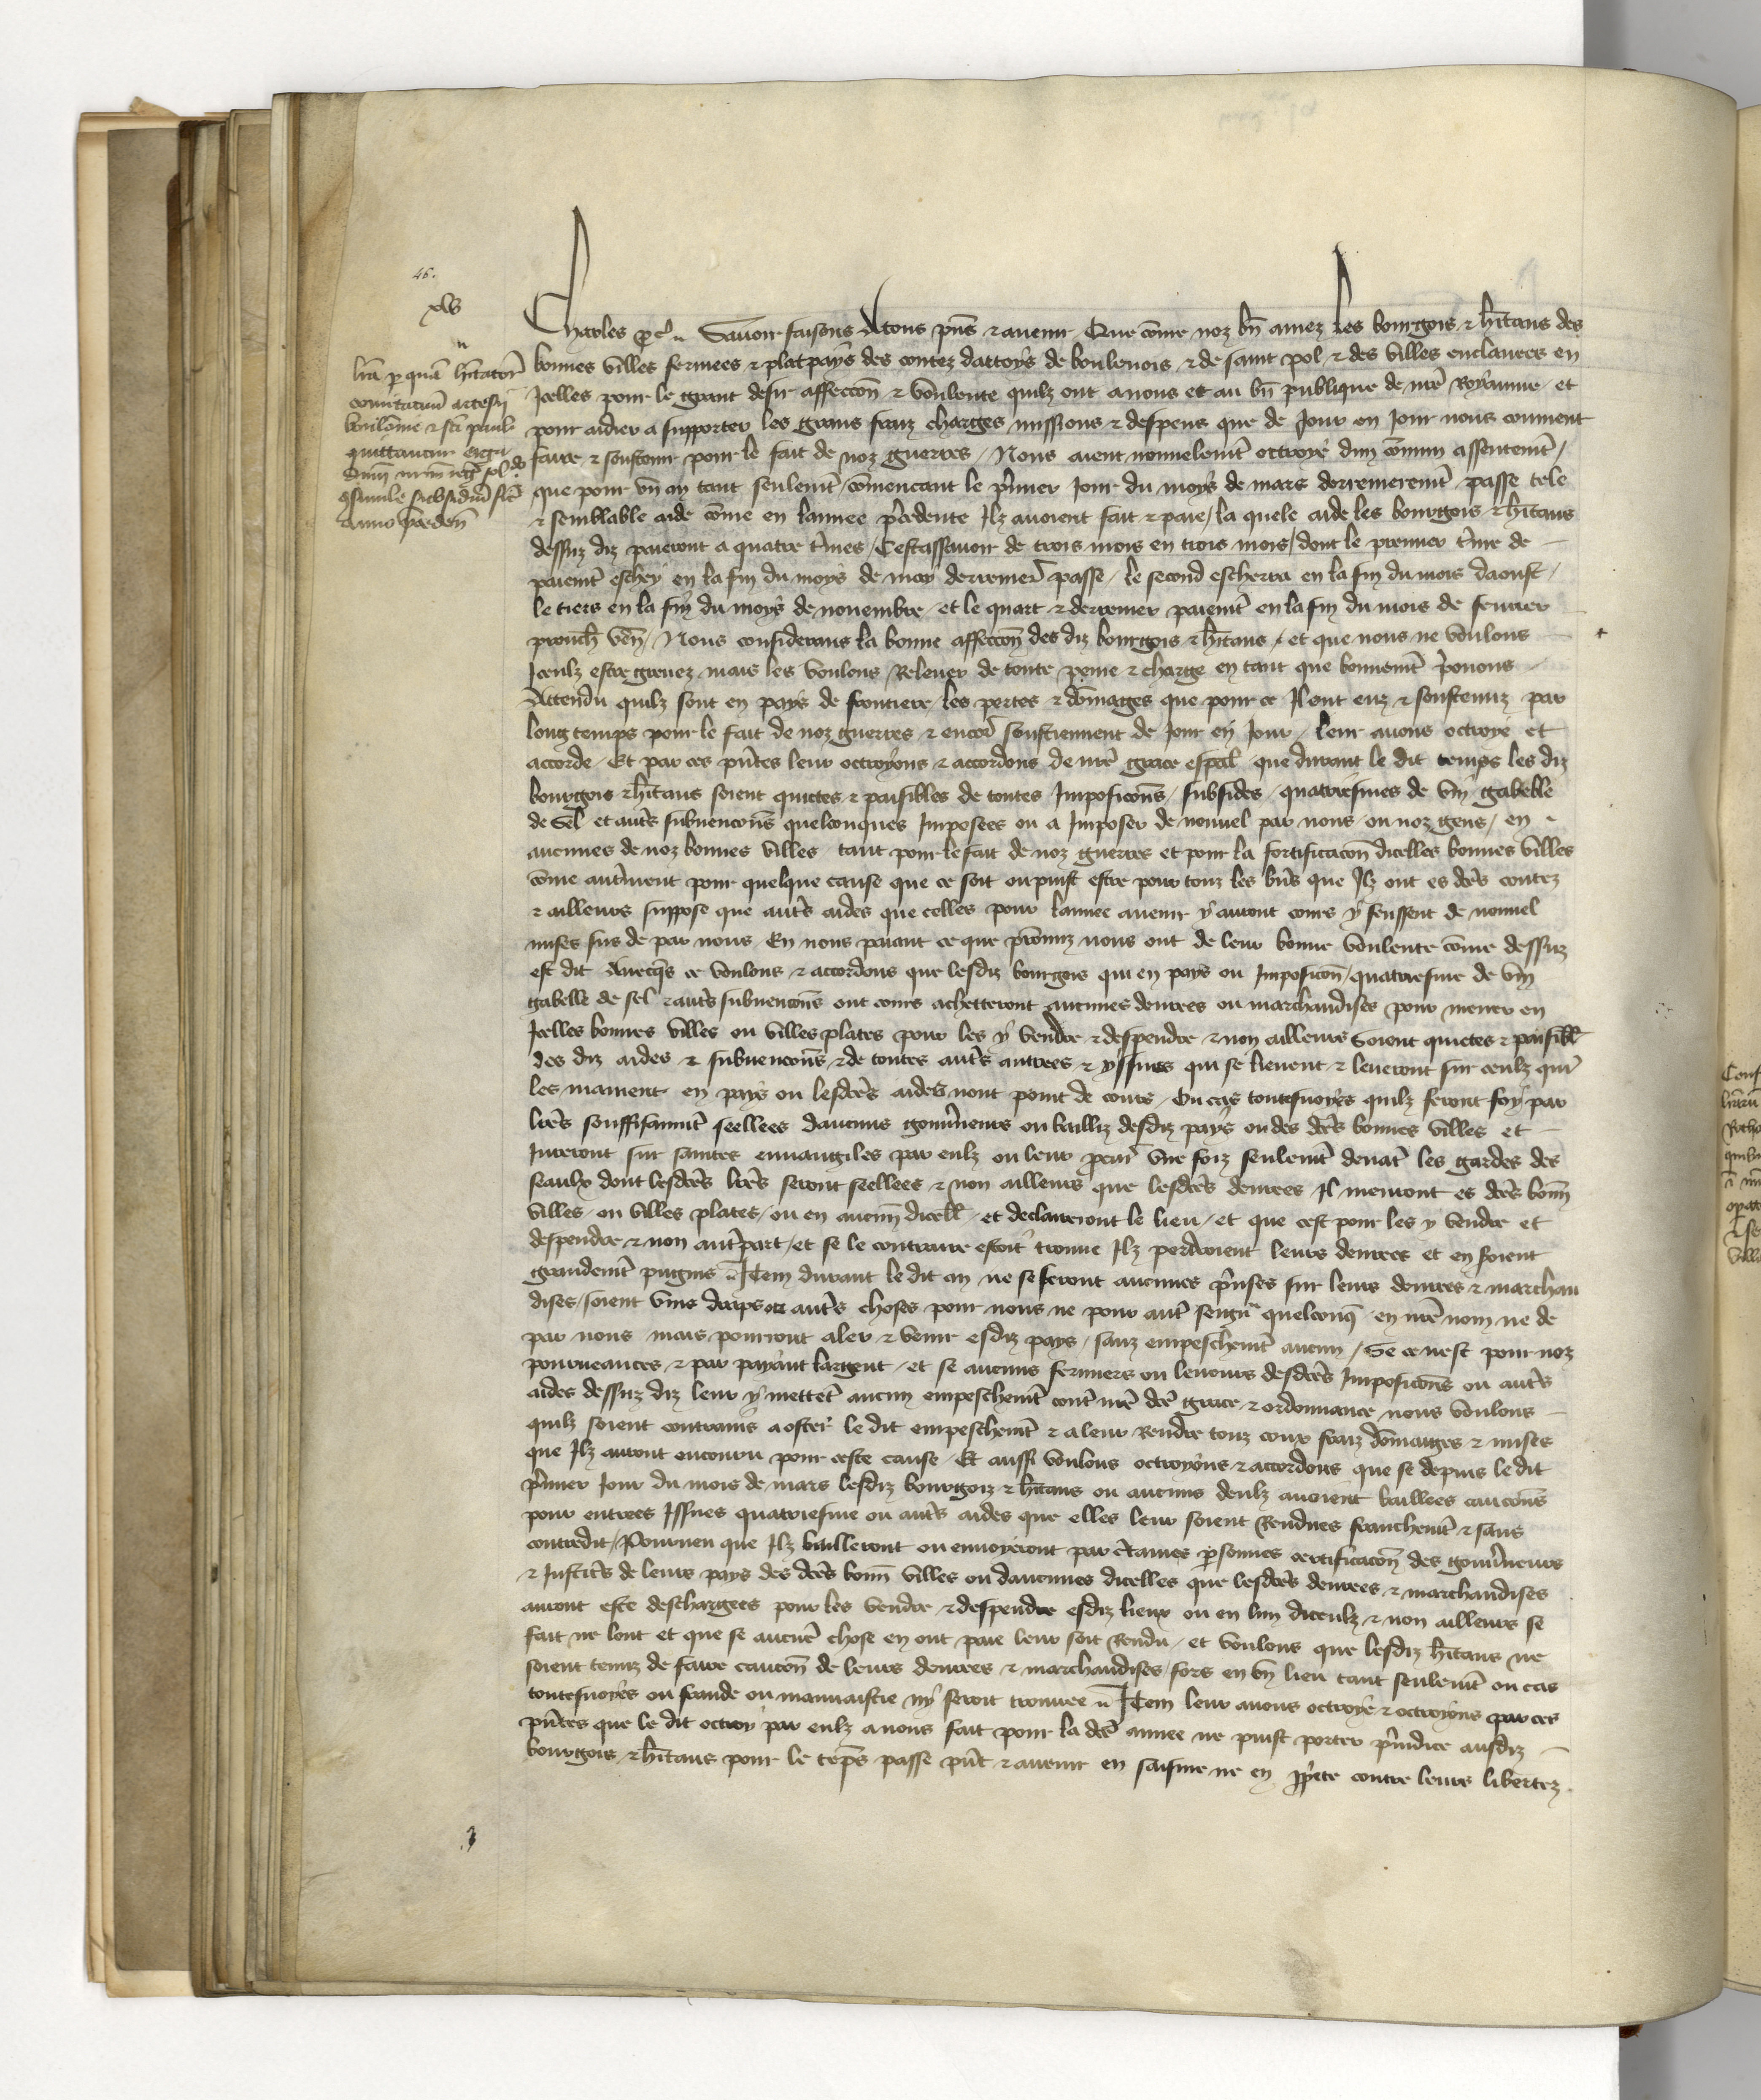 46.
xlvi
lra p quā hitatorꝫ
comitatuū artesij
bouloñie & sci pauli
quittantur erga
dnm nrm regē sol do
gsimile subsidiū sicut
anno pceden
Charles &c. Sauoir faisons A tous pñs & auenir Que cōme noz bñ amez Les bourgois & hitans des
bonnes villes fermees & platpays des contez dartoys de boulenois & de saint pol & des villes enclauees en
Jcelles pour le grant desir affeccōn & voulente quilz ont a nous et au bñ publique de nrē Royaume et
pour aidier a supporter les grans fraiz charges missions & despens que de Jour en Jour nous conuient
faire & soustenir pour le fait de noz guerres / Nous aient nouuelemt̄ octroyé dun cōmun assentemt̄ /
que pour vn an tant seulemt̄ / cōmencant le p̄mier Jour du moys de mars derrenieremt̄ passe tele
& semblable aide cōme en lannee p̄cedente Jlz auoient fait & paie / la quele aide les bourgois & hitans
dessuz diz paieront a quatre t̄mes / Cestassauoir de trois mois en trois mois / dont le premier t̄me de
paiemt̄ eschey en la fin du moys de may derrenier passe / le second escherra en la fin du mois daoust /
le tiers en la fin du moys de nouembre / et le quart & derrenier paiemt̄ en la fin du mois de feurier
prouch̄ veñ / Nous considerans la bonne affeccōn des diz bourgois & hitans / et que nous ne voulons
Jceulz estre greuez mais les voulons Releuer de toute peine & charge en tant que bonnemt̄ p̄ouons
Attendu quilz sont en pays de frontiere / les pertes & dōmages que pour ce Jl ont euz & soustenuz par
long temps pour le fait de noz guerres & encor soustiennent de Jour en Jour / leur auons octroyé et
accorde / Et par ces pñtes leur octroyons & accordons de nrē grace esp̄al que durant le dit temps les diz
bourgois & hitans soient quictes & paisibles de toutes Jmposicōns / subsides / quatriesmes de vin gabelle
de Sel et aut̄s subuencōns quelconques Jmposees ou a Jmposer de nouuel par nous ou noz gens / en
aucunes de noz bonnes villes / tant pour le fait de noz guerres et pour la fortificacōn dicelles bonnes villes
cōme aut̄ment pour quelque cause que ce soit ou puist estre pour touz les bñs que Jlz ont es dc̄es contez
& ailleurs suppose que aut̄s aides que celles pour lannee auenir y auront cours y feussent de nouuel
mises sus de par nous / En nous paiant ce que promiz nous ont de leur bonne voulente cōme dessuz
est dit Auecqs ce voulons & accordons que lesdiz bourgois qui en pays ou Jmposicōn / quatriesme de vin
gabelle de sel & aut̄s subuencōns ont cours achetteront aucunes denrees ou marchandises pour mener en
Jcelles bonnes villes ou villes plates pour les y vendre & despendre & non ailleurs Soient quictes & paisibl̄
des diz aides & subuencōns & de toutes aut̄s entrees & yssues qui se lieuent & leueront sur ceulz qui
les mainent en pays ou lesdc̄es aides nont point de cours / Ou cas toutesuoyes quilz feront foy par
lr̄es souffisanmt̄ seellees daucuns gouu̓neurs ou bailliz desdiz pays ou des dc̄es bonnes villes et
Jurront sur saintes euuangiles par eulz ou leur p̄cur̓ vne foiz seulemt̄ deuāt les gardes des
seaulx dont lesdc̄es lr̄es seront seellees & non ailleurs que lesdc̄es denrees Jl menront es dc̄es bonn̄
villes / ou villes plates / ou en aucun̄ dicell̄ / et declairront le lieu / et que cest pour les y vendre et
despendre & non aut̄part / et se le contraire estoit trouue Jlz perdroient leurs denrees et en soient
grandemt̄ pugniz Jtem durant le dit an ne se feront aucunes prinses sur leurs denrees & marchan
dises / soient vins draps ou aut̄s choses pour nous ne pour aut̄ seign̄r quelconq̄ en nrē nom ne de
par nous mais pourront aler & venir esdiz pays / sanz empeschemt̄ aucun / Se ce nest pour noz
pourueances & par payant largent / et se aucuns fermiers ou leueurs desdc̄es Jmposicōns ou aut̄s
aides dessuz diz leur y mettēt aucun empeschemt̄ contr̄ nrē dc̄e grace & ordonnance nous voulons
quilz soient contrains a oster le dit empeschemt̄ & a leur Rendre touz coux fraiz dōmages & mises
que Jlz auront encouru pour ceste cause / Et aussi voulons octroyons & accordons que se depuis le dit
p̄mier Jour du mois de mars lesdiz bourgoiz & hitans ou aucuns deulz auoient baillees caucōns
pour entrees Jssues quatriesme ou aut̄s aides que elles leur soient Rendues franchemt̄ & sans
contredit / Pourueu que Jlz bailleront ou enuoyeront par c̄taines p̄sonnes certificacōn des gouu̓neurs
& Justic̄es de leurs pays des dc̄es bonn̄ villes ou daucunes dicelles que lesdc̄es denrees & marchandises
auront este deschargees pour les vendre & despendre esdiz lieux ou en lun diceulz & non ailleurs se
fait ne lont et que se aucun̄ chose en ont paie leur soit Rendu / et voulons que lesdiz hitans ne
soient tenuz de faire caucōn de leurs denrees & marchandises / fors en vn lieu tant seulemt̄ ou cas
toutesuoyes ou fraude ou mauuaistie ny seroit trouuee Jtem leur auons octroyé & octroyons par ces
pñtes que le dit octroy par eulz a nous fait pour la dc̄e annee ne puist porter p̄iudice ausdiz
bourgois & hitans pour le tēps passe pñt & auenir en saisine ne en pp̄ete contre leurs libertez